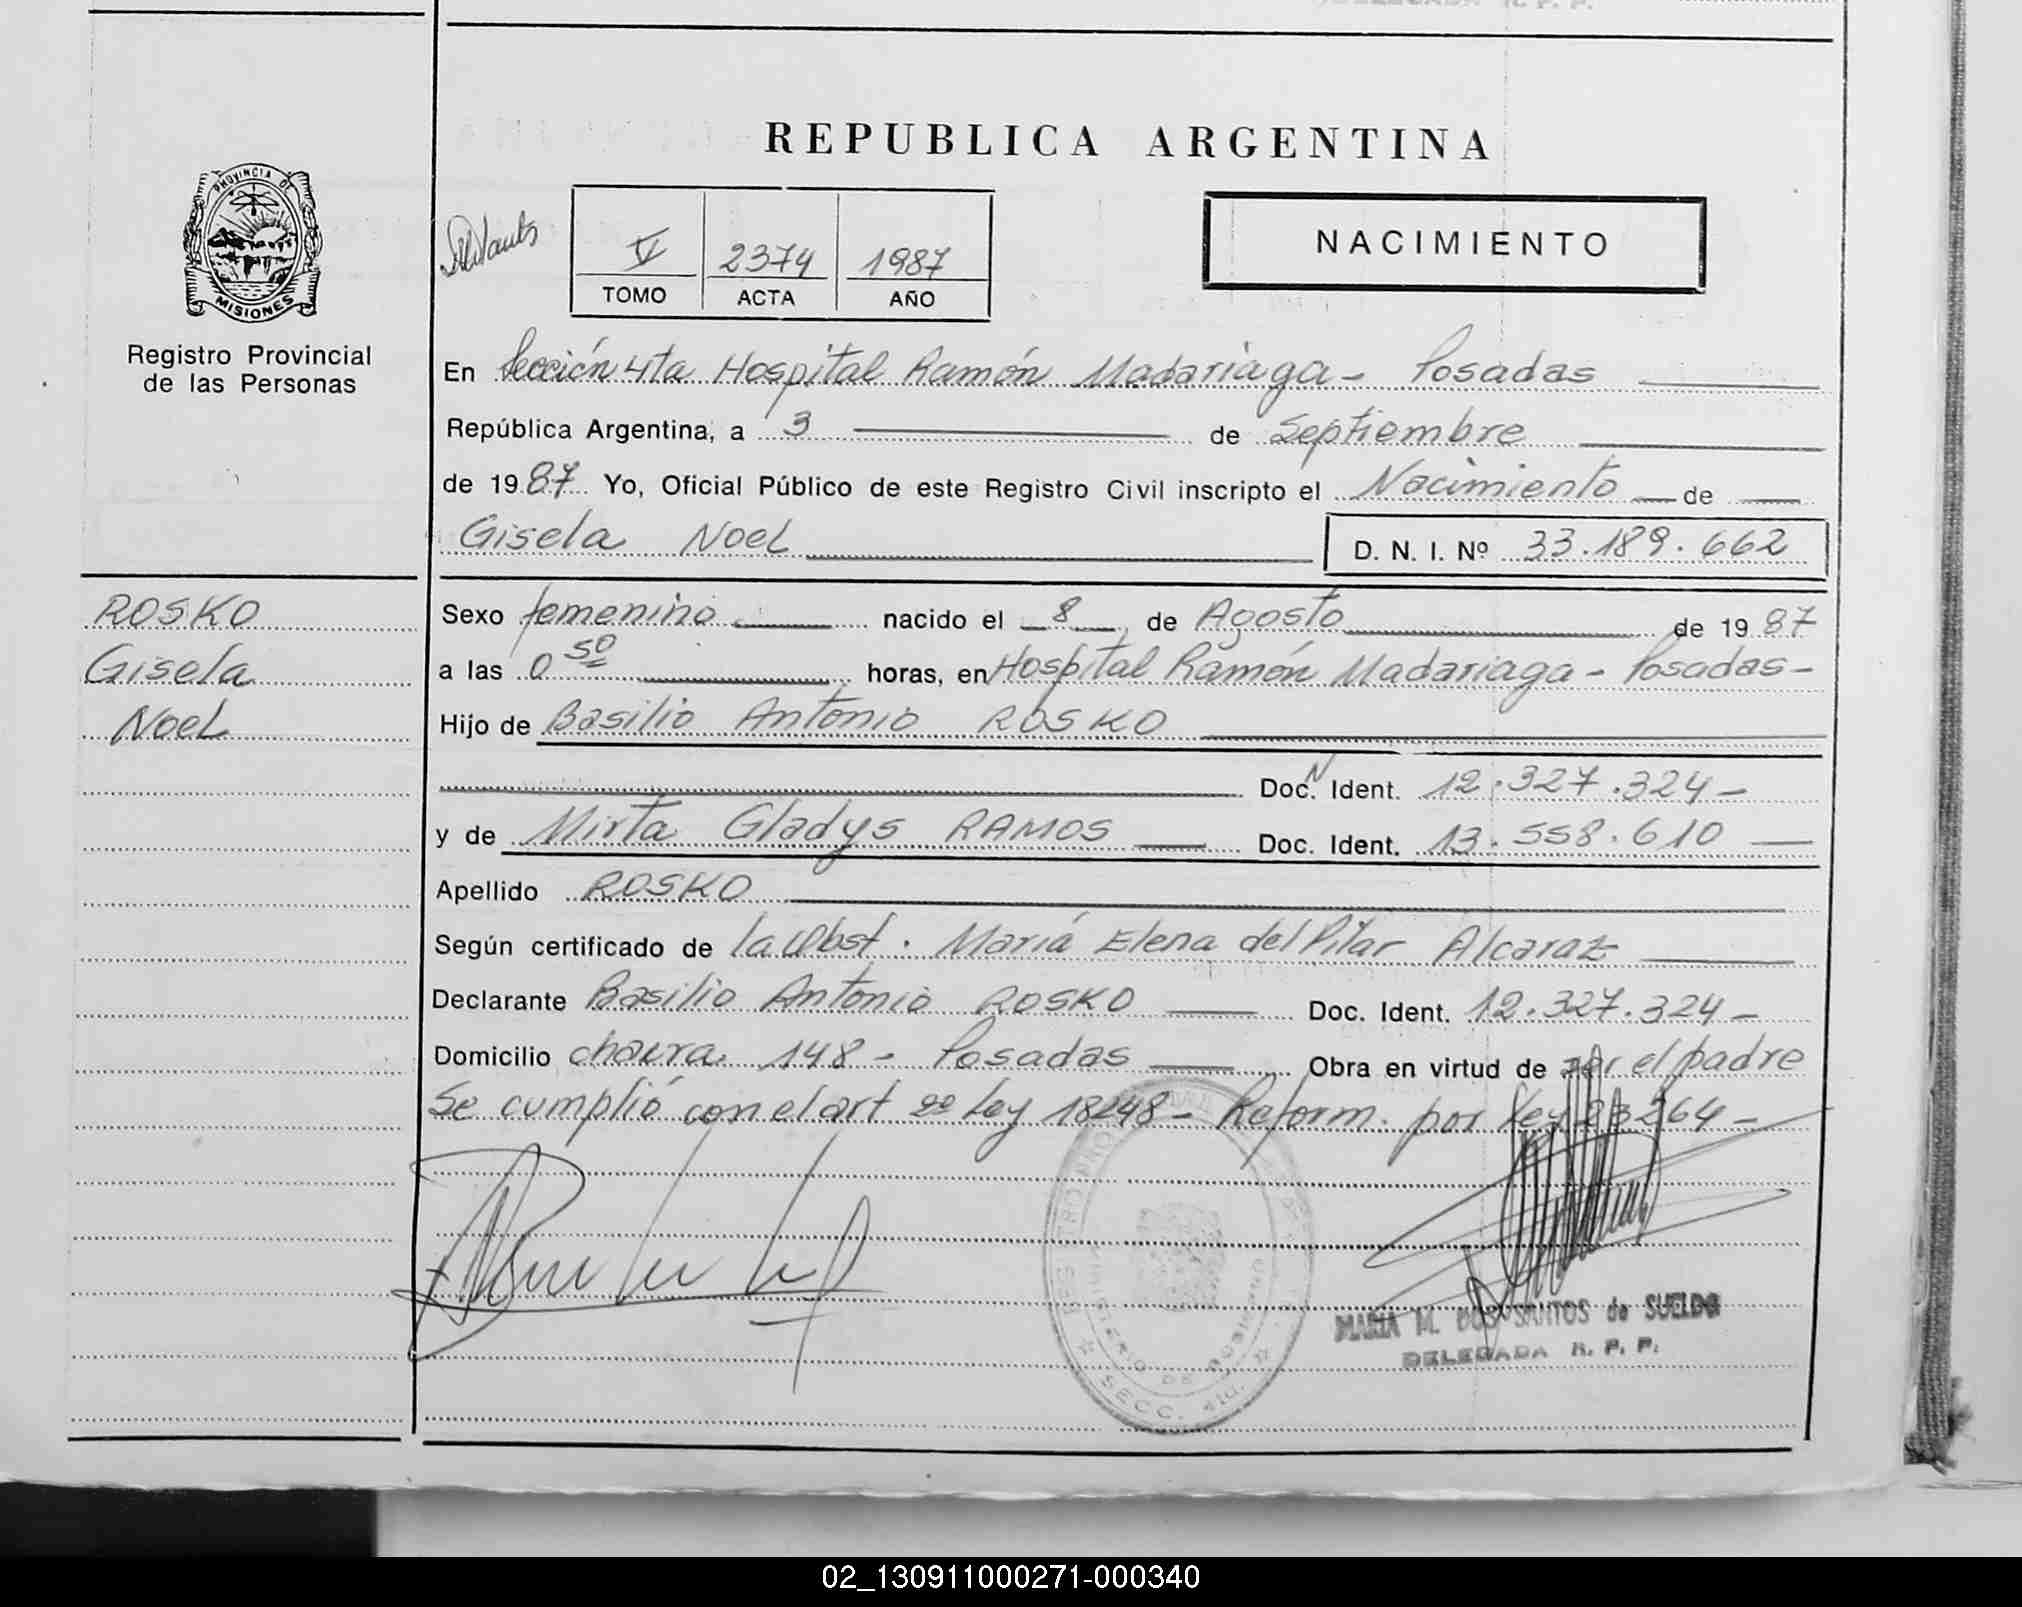 REPUBLICA ARGENTINA
PROVINCIA DE
MISIONES
Registro Provincial
de las Personas
V 2374 1987
TOMO ACTA AÑO
NACIMIENTO
En Sección 4ta Hospital Ramón Madariaga - Posadas
República Argentina, a 3 de Septiembre
de 1987 Yo, Oficial Público de este Registro Civil inscripto el Nacimiento de
Gisela Noel D. N. I. Nº 33.189.662
ROSKO
Gisela
Noel
Sexo femenino nacido el 8 de Agosto de 1987
a las 0 50 horas, en Hospital Ramón Madariaga - Posadas -
Hijo de Basilio Antonio ROSKO
Doc. N Ident. 12.327.324 -
y de Mirta Gladys RAMOS Doc. Ident. 13.558.610
Apellido ROSKO
Según certificado de la Obst. María Elena del Pilar Alcaraz
Declarante Basilio Antonio ROSKO Doc. Ident. 12.327.324 -
Domicilio chacra 148 - Posadas Obra en virtud de ser el padre
Se cumplió con el art 2º Ley 18248 - Reform. por Ley 23264 -
MINISTERIO DE GOBIERNO
SECC. 4ta.
MARIA M. DOS SANTOS de SUELDO
DELEGADA R. P. P.
02_130911000271-000340